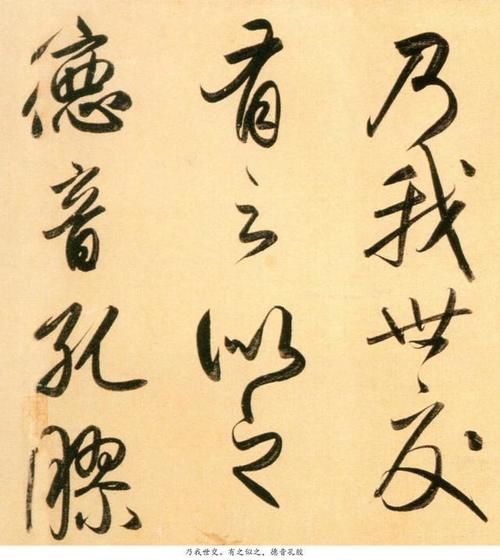 乃我世交
有之似之
德音孔膠
乃我世交。有之似之，德音孔胶